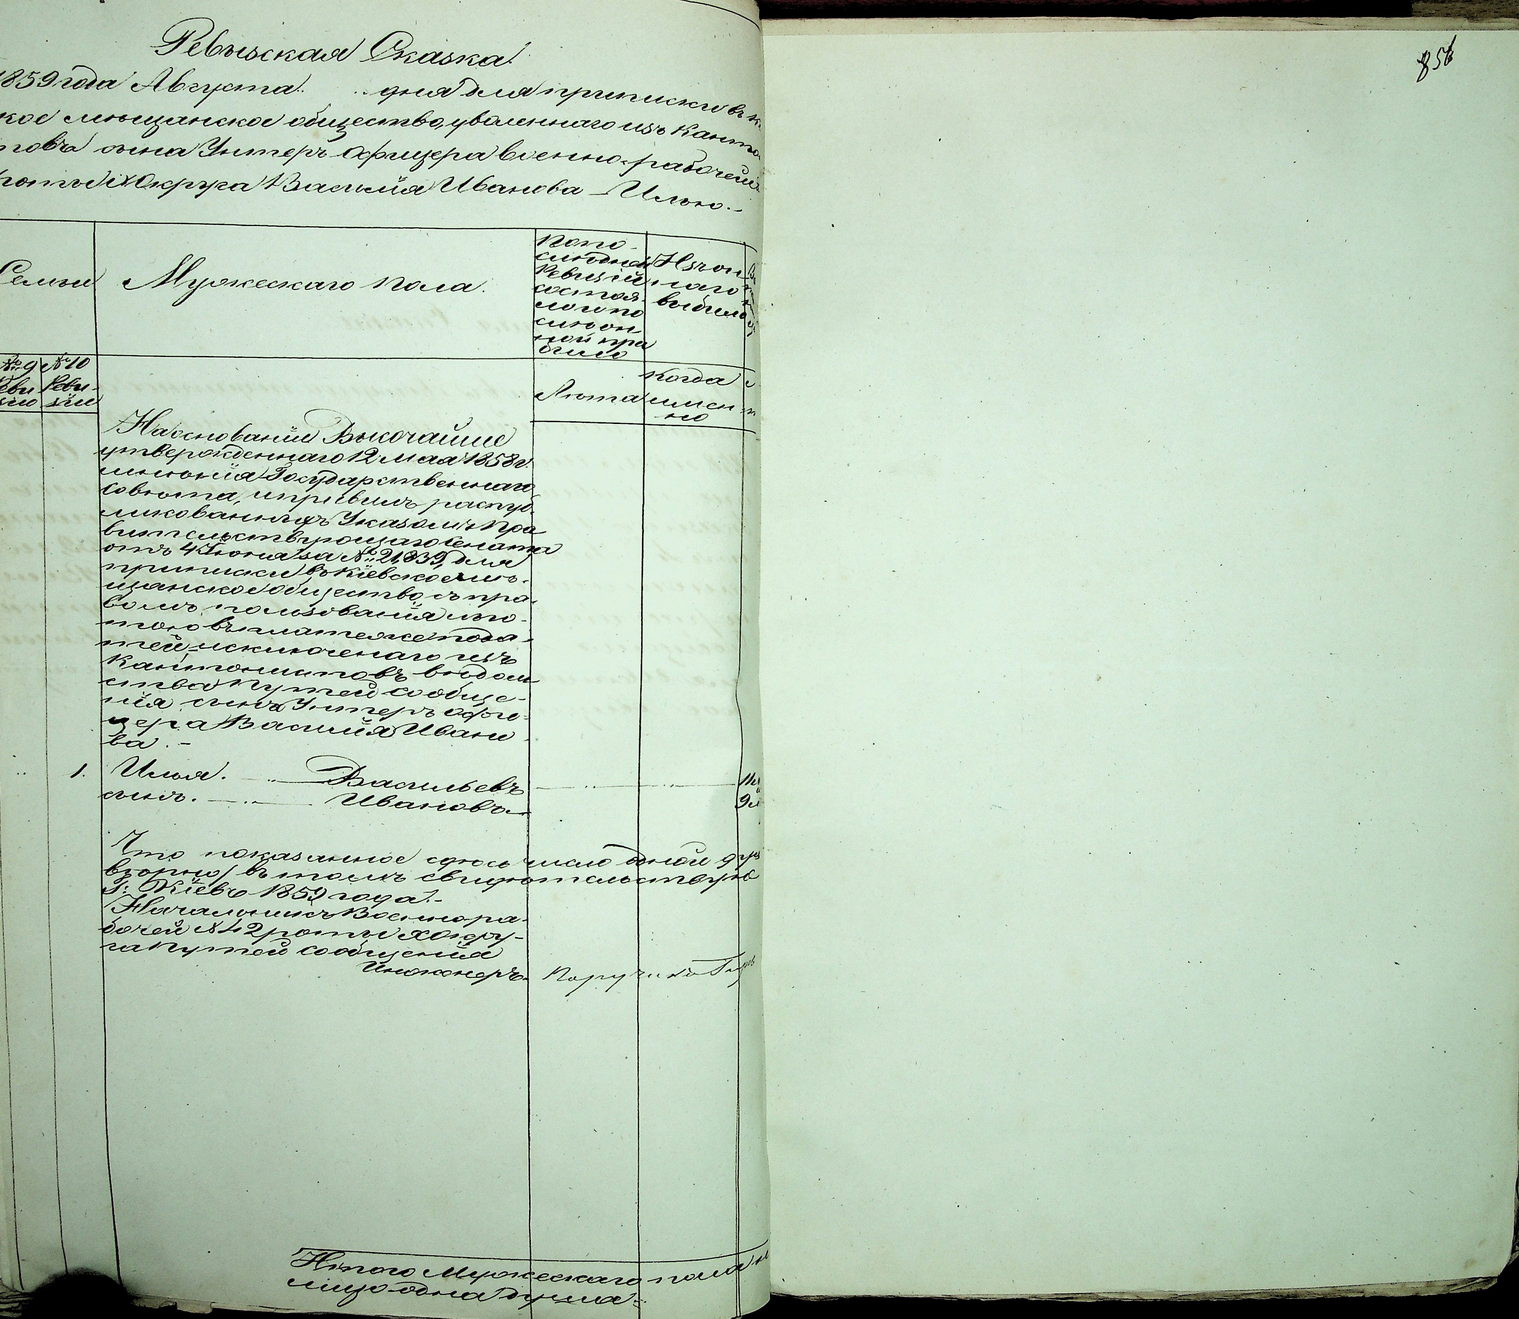 856
Ревизская Сказка
1859 года Августа дня для приписки въ
кое мѣщанское общество, уволеннаго изъ Канто
товъ сына Унтеръ-Офицера Военно-рабочей
роты X Округа Василія Иванова – Илью.–
Семьи
Мужескаго пола.
По по-
слѣдней
Ревизіи
состоя-
ло и по
слѣ он-
ной при
было
Изъ он
наго
выбыло
№ 9 № 10
Реви Реви-
зію зіи
Лѣта
Когда
имен-
но
На основаніи Высочайше
утвержденнаго 12 Мая 1858 г.
мнѣнія Государственнаго
Совѣта, и правилъ распуб-
ликованныхъ Указомъ Пра
вительствующаго Сената
отъ 4 Іюня за № 21839, для
приписки въ Кіевское мѣ-
щанское общество, съ пра-
вомъ пользованія льго-
тою въ платежѣ пода-
тей, исключенаго изъ
кантонистовъ вѣдом
ства Путей Сообще-
нія, сынъ Унтеръ-Офи-
цера Василія Ивано
ва.–
1. Илья. Васильевъ
сынъ. Ивановъ
Что показанное здѣсь число одной
вѣрно, въ томъ свидѣтельствую
Г. Кіевъ 1859 года.–
Начальникъ Военнора-
бочей № 42 роты X Окру-
га Путей Сообщенія
Инженеръ Поручикъ
Итого Мужескаго пола
лицо одна душа